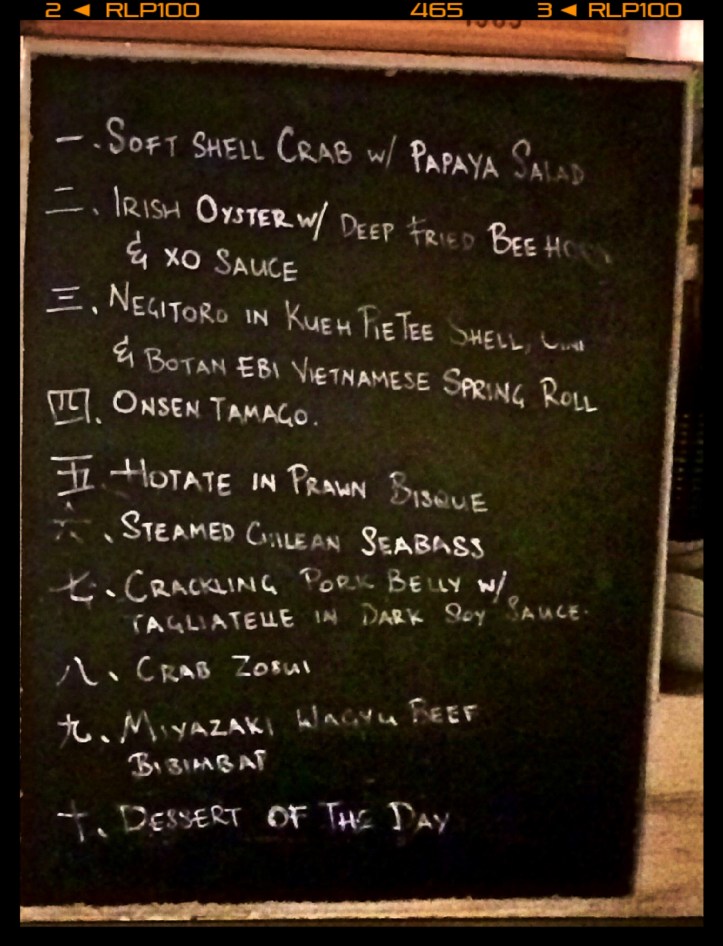 2 ◄ RLP100 465 3 ◄ RLP100
一. SOFT SHELL CRAB W/ PAPAYA SALAD
二. IRISH OYSTER W/ DEEP FRIED BEE
& XO SAUCE
三. NEGITORO IN KUEH PIE TEE SHELL, UNI
& BOTAN EBI VIETNAMESE SPRING ROLL
四. ONSEN TAMAGO.
五. HOTATE IN PRAWN BISQUE
六. STEAMED CHILEAN SEABASS
七. CRACKLING PORK BELLY W/
TAGLIATELLE IN DARK SOY SAUCE.
八. CRAB ZOSUI
九. MIYAZAKI WAGYU BEEF
BIBIMBAP
十. DESSERT OF THE DAY